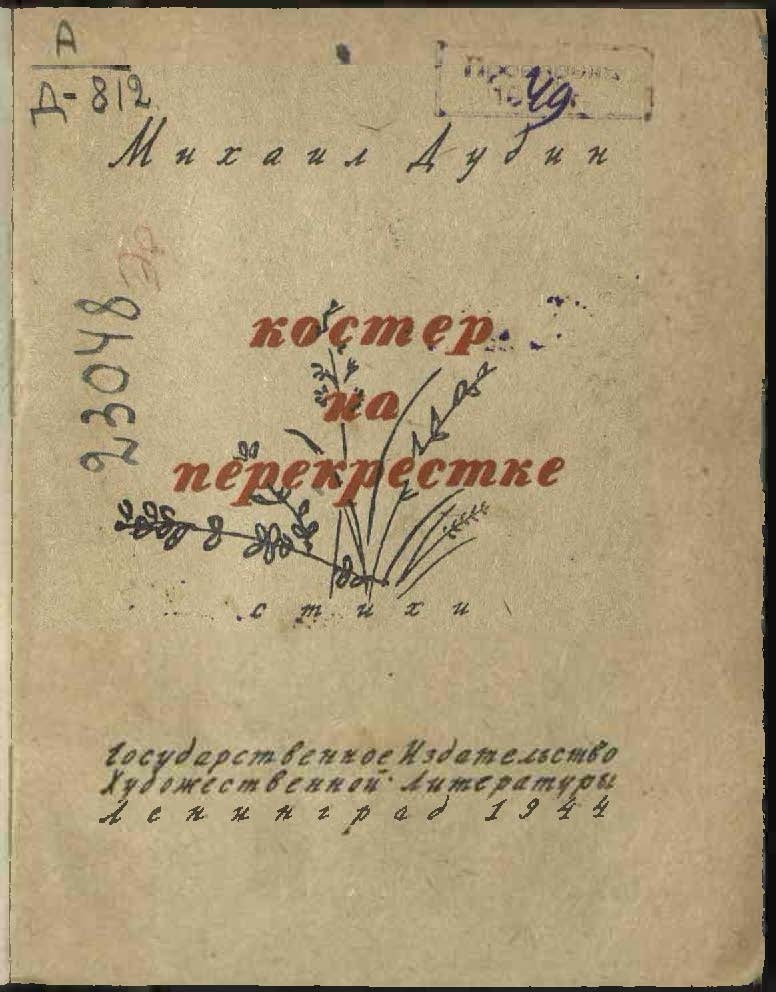 А
Д-812
49
Михаил Дубин
23048
костер
на
перекрестке
стихи
Государственное Издательство
Художественной Литературы
Ленинград 1944